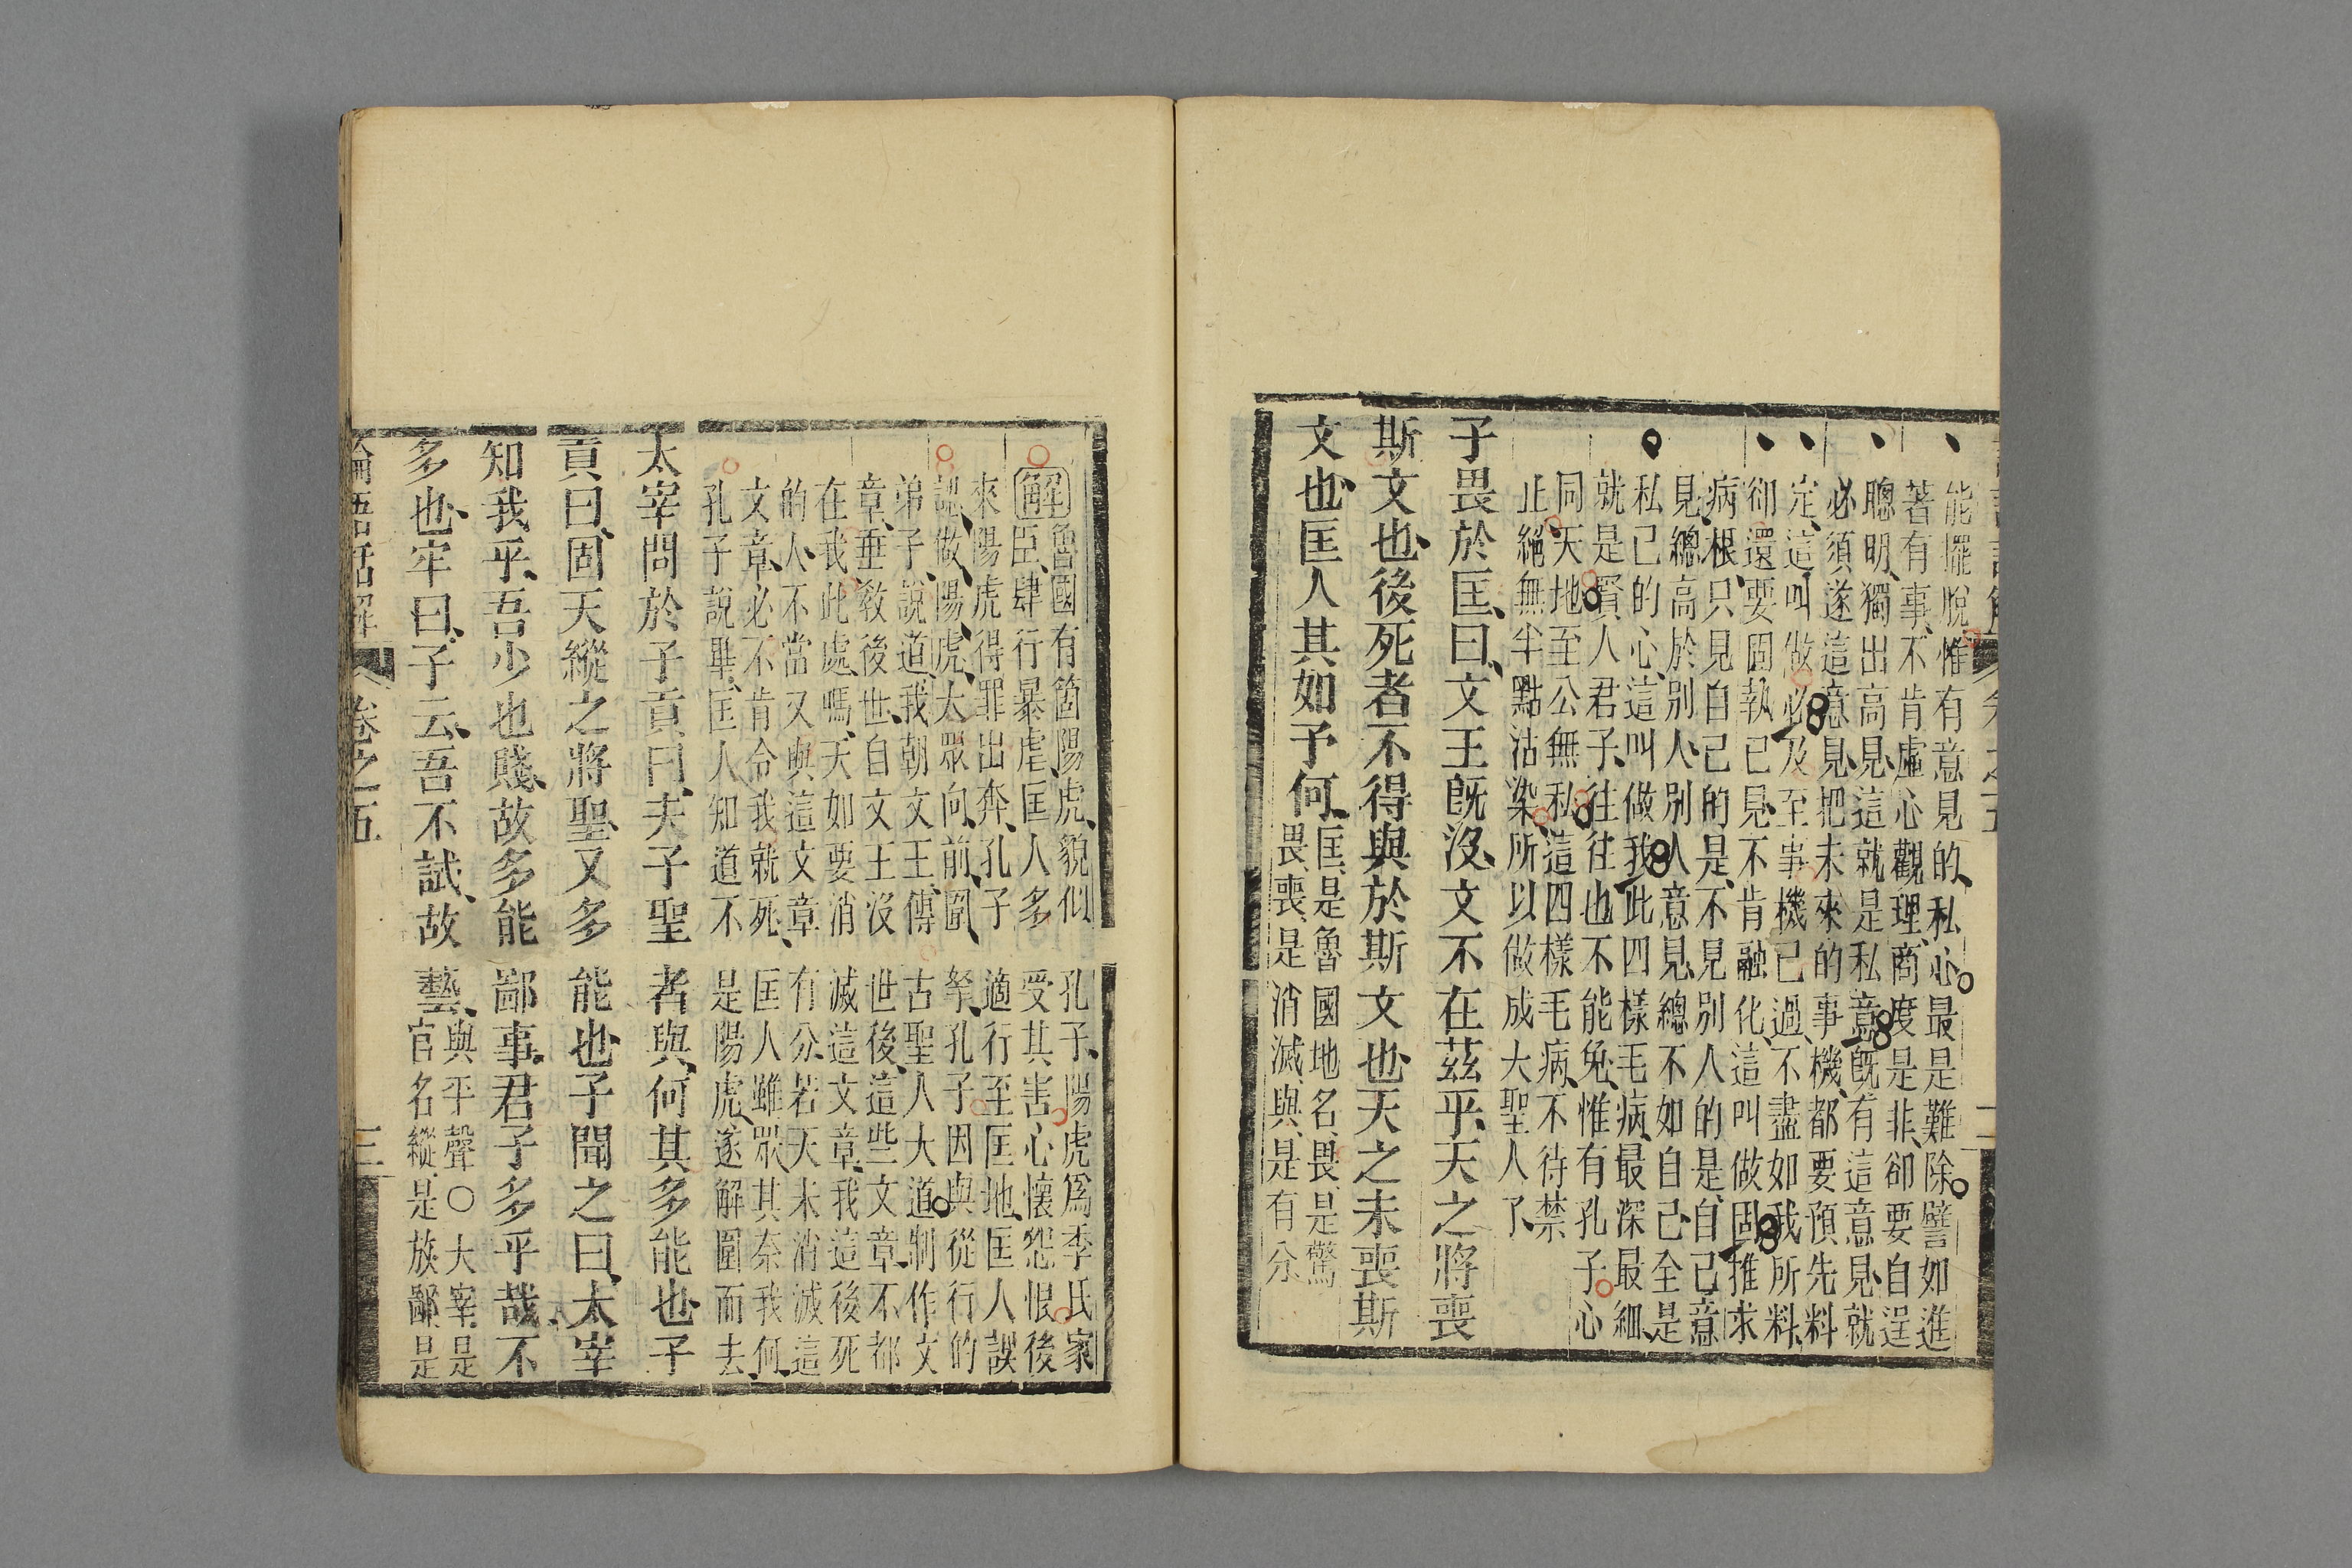 能擺脫、惟有意見的、私心最是難除譬如進
著有事、不肯虛心觀理、商度是非、卻要自逞
聰明、獨出高見、這就是私意旣有這意見、就
必須遂這意見、把未來的事機、都要預先料
定、這叫做必及至事機已過、不盡如我所料、
卻還要固執已見、不肯融化、這叫做固推求
病根、只見自己的是、不見別人的是、自己意
見、總高於別人、別人意見、總不如自己、全是
私己的心、這叫做我此四樣毛病、最深最細、
就是賢人君子、往往也不能免、惟有孔子心
同天地至公無私這四樣毛病、不待禁
止絕無半點沾染所以做成大聖人了、
子畏於匡、曰、文王旣沒、文不在茲乎、天之將喪
斯文也、後死者不得與於斯文也、天之未喪斯
文也、匡人其如予何、
匡、是魯國地名、畏、是驚
畏、喪、是消滅、與、是有分、
解魯國有箇陽虎、貌似孔子、陽虎爲季氏家
臣、肆行暴虐、匡人多受其害、心懷怨恨、後
來陽虎得罪出奔、孔子適行至匡地、匡人誤
認做陽虎、大眾向前、圍拏、孔子因與從行的
弟子、說道、我朝文王、傳古聖人大道、制作文
章、垂敎後世、自文王沒世後、這些文章、不都
在我此處嗎、天如要消滅這文章、我這後死
的人、不當又與這文章有分、若天未消滅這
文章、必不肯令我就死、匡人雖眾、其奈我何、
孔子說畢、匡人知道不是陽虎、遂解圍而去、
太宰問於子貢曰、夫子聖者與、何其多能也、子
貢曰、固天縱之將聖、又多能也、子聞之曰、太宰
知我乎、吾少也賤、故多能鄙事、君子多乎哉、不
多也、牢曰、子云、吾不試、故藝、
與平聲○大宰、是
官名縱、是放鄙、是
論語話解 卷之五 三